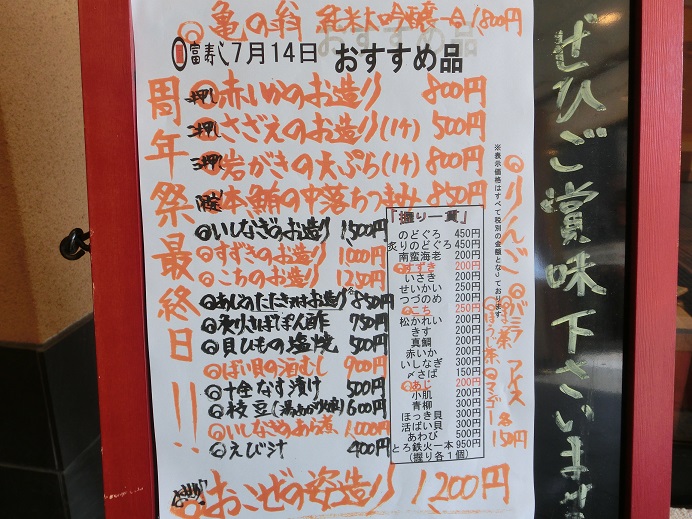 亀の翁 純米大吟醸一合1,800円
富寿し7月14日 おすすめ品
周年祭最終日!!
一押し 赤いかのお造り 800円
二押し さざえのお造り(1ケ) 500円
三押し 岩がきの天ぷら(1ケ) 800円
本鮪の中落ちつまみ 850円
◎いしなぎのお造り 1,500円
◎すずきのお造り 1000円
◎こちのお造り 1250円
◎あじのたたき又はお造り 850円
◎炙りさばぽん酢 750円
◎貝ひもの塩焼 500円
◎ばい貝の酒むし 900円
◎十全なす漬け 500円
◎枝豆 600円
◎いしなぎのあら煮 1,000円
◎えび汁 400円
おこぜの姿造り 1200円
「握り一貫」
のどぐろ 450円
炙りのどぐろ 450円
南蛮海老 200円
◎すずき 200円
いさき 200円
せいかい 250円
つづのめ 200円
◎こち 250円
松かれい 200円
きす 200円
真鯛 200円
赤いか 200円
いしなぎ 300円
〆さば 150円
◎あじ 200円
小肌 200円
青柳 300円
ほっき貝 300円
活ばい貝 300円
あわび 500円
とろ鉄火一本 950円
(握り各1個)
※表示価格はすべて税別の金額となっております
◎りんご ◎バニラ アイス
◎ほうじ茶 ◎マンゴー 各150円
ぜひご賞味下さいませ